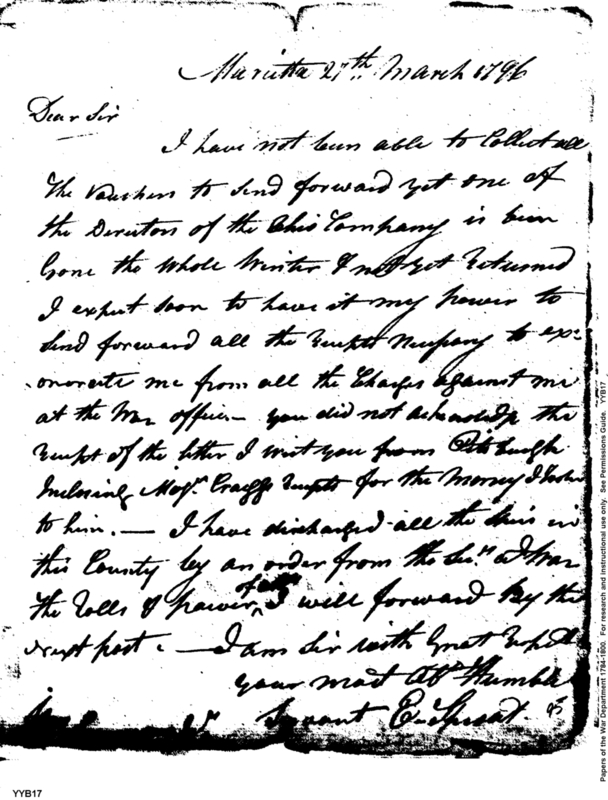 Marietta 27th March 1796
Dear Sir
I have not been able to Collect all
the Vouchers to Send forward yet one of
the Directors of the Ohio Company is been
Gone the Whole Winter & not yet Returned
I expect soon to have it my power to
Send forward all the Receipts Necessary to ex=
onorate me from all the Charges against me
at the War office.— you did not acknowledge the
Receipt of the letter I wrote you from Pitsburgh
Inclosing Majr. Craigs Receipts for the Money I
to him. — I have discharged all the Spies in
this County by an order from the Secy. at War
the Rolls & power of I will forward By the
next post. — I am Sir with Great Respect
your most Obt. Humble
Servant E. Sproat
95
YYB17
Papers of the War Department 1784-1800. For research and instructional use only. See Permissions Guide. YYB17